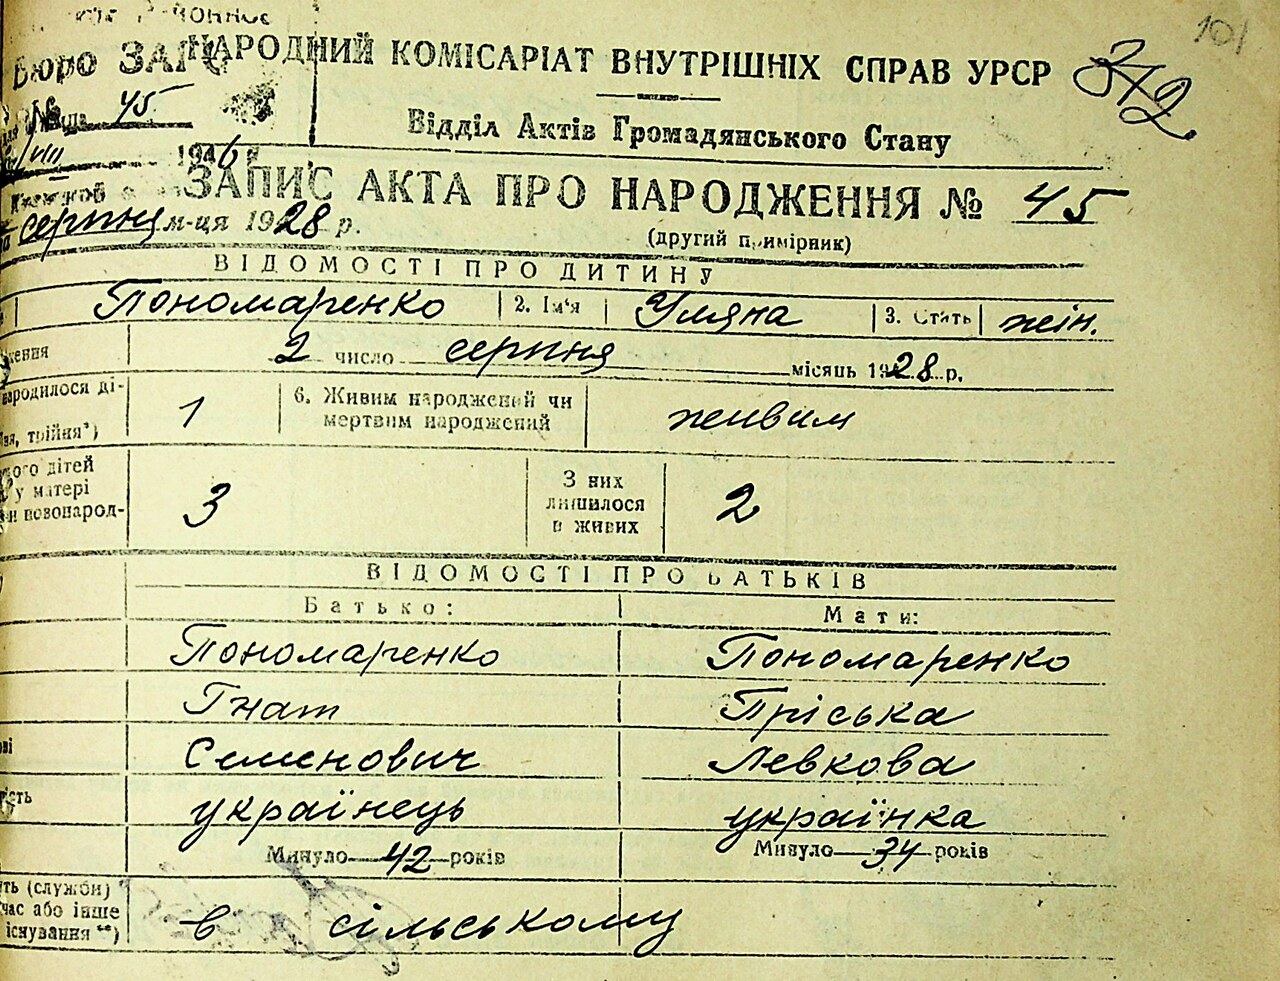 101
372
НАРОДНИЙ КОМІСАРІАТ ВНУТРІШНІХ СПРАВ УРСР
Бюро ЗАГС
Відділ Актів Громадянського Стану
№ 45
VIII 1946 р.
ЗАПИС АКТА ПРО НАРОДЖЕННЯ № 45
серпня м-ця 1928 р.
(другий примірник)
ВІДОМОСТІ ПРО ДИТИНУ
Пономаренко 2. Ім'я Уляна 3. Стать жін.
ження 2 число серпня місяць 1928 р.
народилося ді-
йня, трійня*) 1 6. Живим народжений чи мертвим народжений живим
кого дітей
у матері
новонарод- 3 З них лишилося в живих 2
ВІДОМОСТІ ПРО БАТЬКІВ
Батько: Мати:
Пономаренко Пономаренко
Гнат Пріська
ові Семенович Левкова
ість українець українка
Минуло 42 років Минуло 34 років
ть (служби)
час або інше
існування **) в сільському